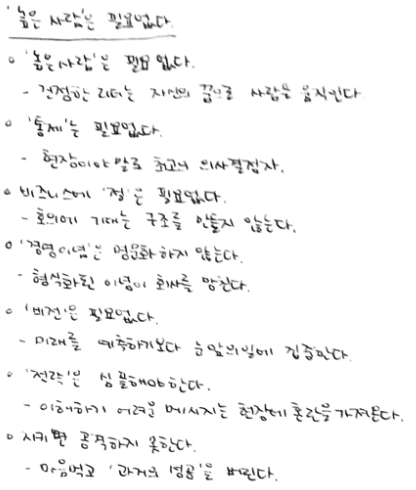 '높은 사람'은 필요없다.
○ '높은사람'은 필요 없다.
- 진정한 리더는 자신의 꿈으로 사람을 움직인다.
○ '통제'는 필요없다.
- 현장이야 말로 최고의 의사결정자.
○ 비즈니스에 '정'은 필요없다.
- 호의에 기대는 구조를 만들지 않는다.
○ '경영이념'은 명문화하지 않는다.
- 형식화된 이념이 회사를 망친다.
○ '비전'은 필요없다.
- 미래를 예측하기보다 눈앞의일에 집중한다.
○ '전략'은 심플해야한다.
- 이해하기 어려운 메시지는 현장에 혼란을가져온다.
○ 지키면 공격하지 못한다.
- 마음먹고 '과거의 성공'을 버린다.